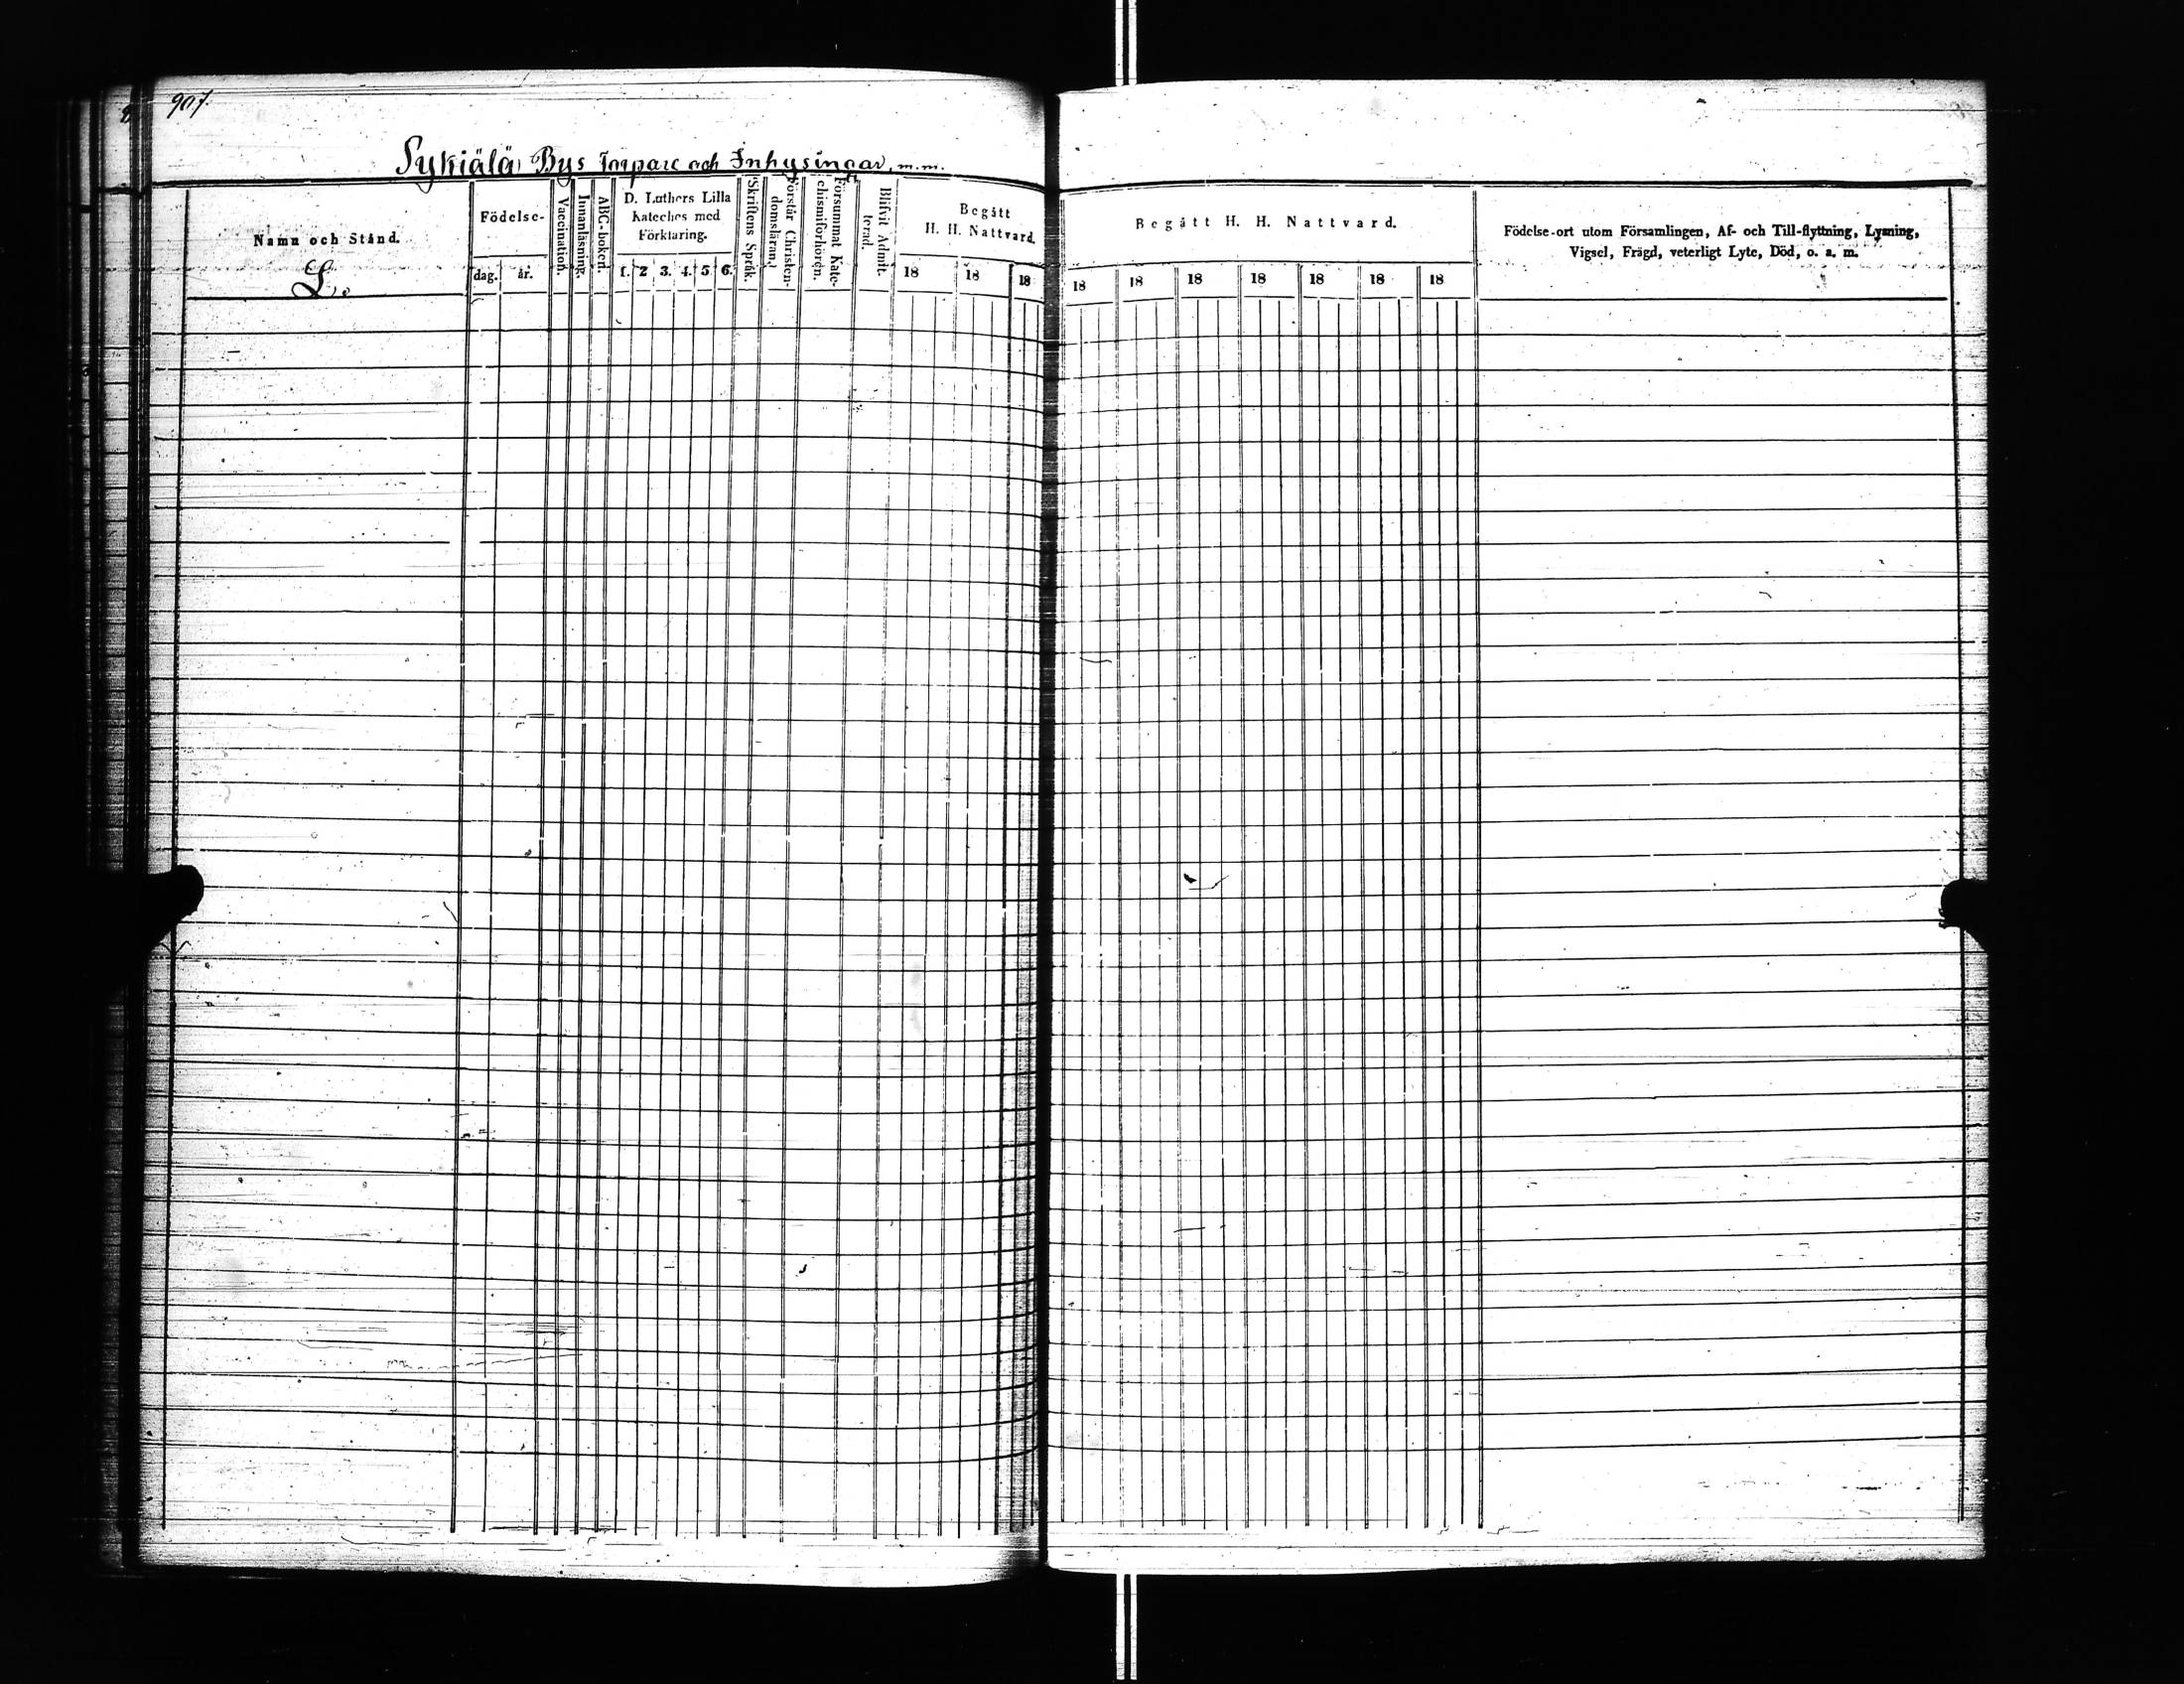 907.
Sykiälä Bys Torpare och Inhysingar, m.m.
Namn och Stånd.
L.
Födelse-
dag. år.
Vaccination.
Innanläsning.
ABC-boken.
D. Luthers Lilla
Kateches med
Förklaring.
1. 2 3. 4. 5 6.
Skriftens Språk.
Förstår Christen-
domsläran.
Försummat Kate-
chismiförhören.
Blifvit Admit-
terad.
Begått
H. H. Nattvard.
18 18 18
Begått H. H. Nattvard.
18 18 18 18 18 18 18
Födelse-ort utom Församlingen, Af- och Till-flyttning, Lysning,
Vigsel, Frägd, veterligt Lyte, Död, o. s. m.